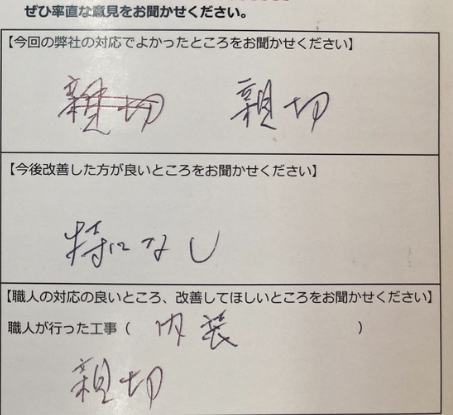 ぜひ率直な意見をお聞かせください。
【今回の弊社の対応でよかったところをお聞かせください】
親切 親切
【今後改善した方が良いところをお聞かせください】
特になし
【職人の対応の良いところ、改善してほしいところをお聞かせください】
職人が行った工事（ 内装 ）
親切